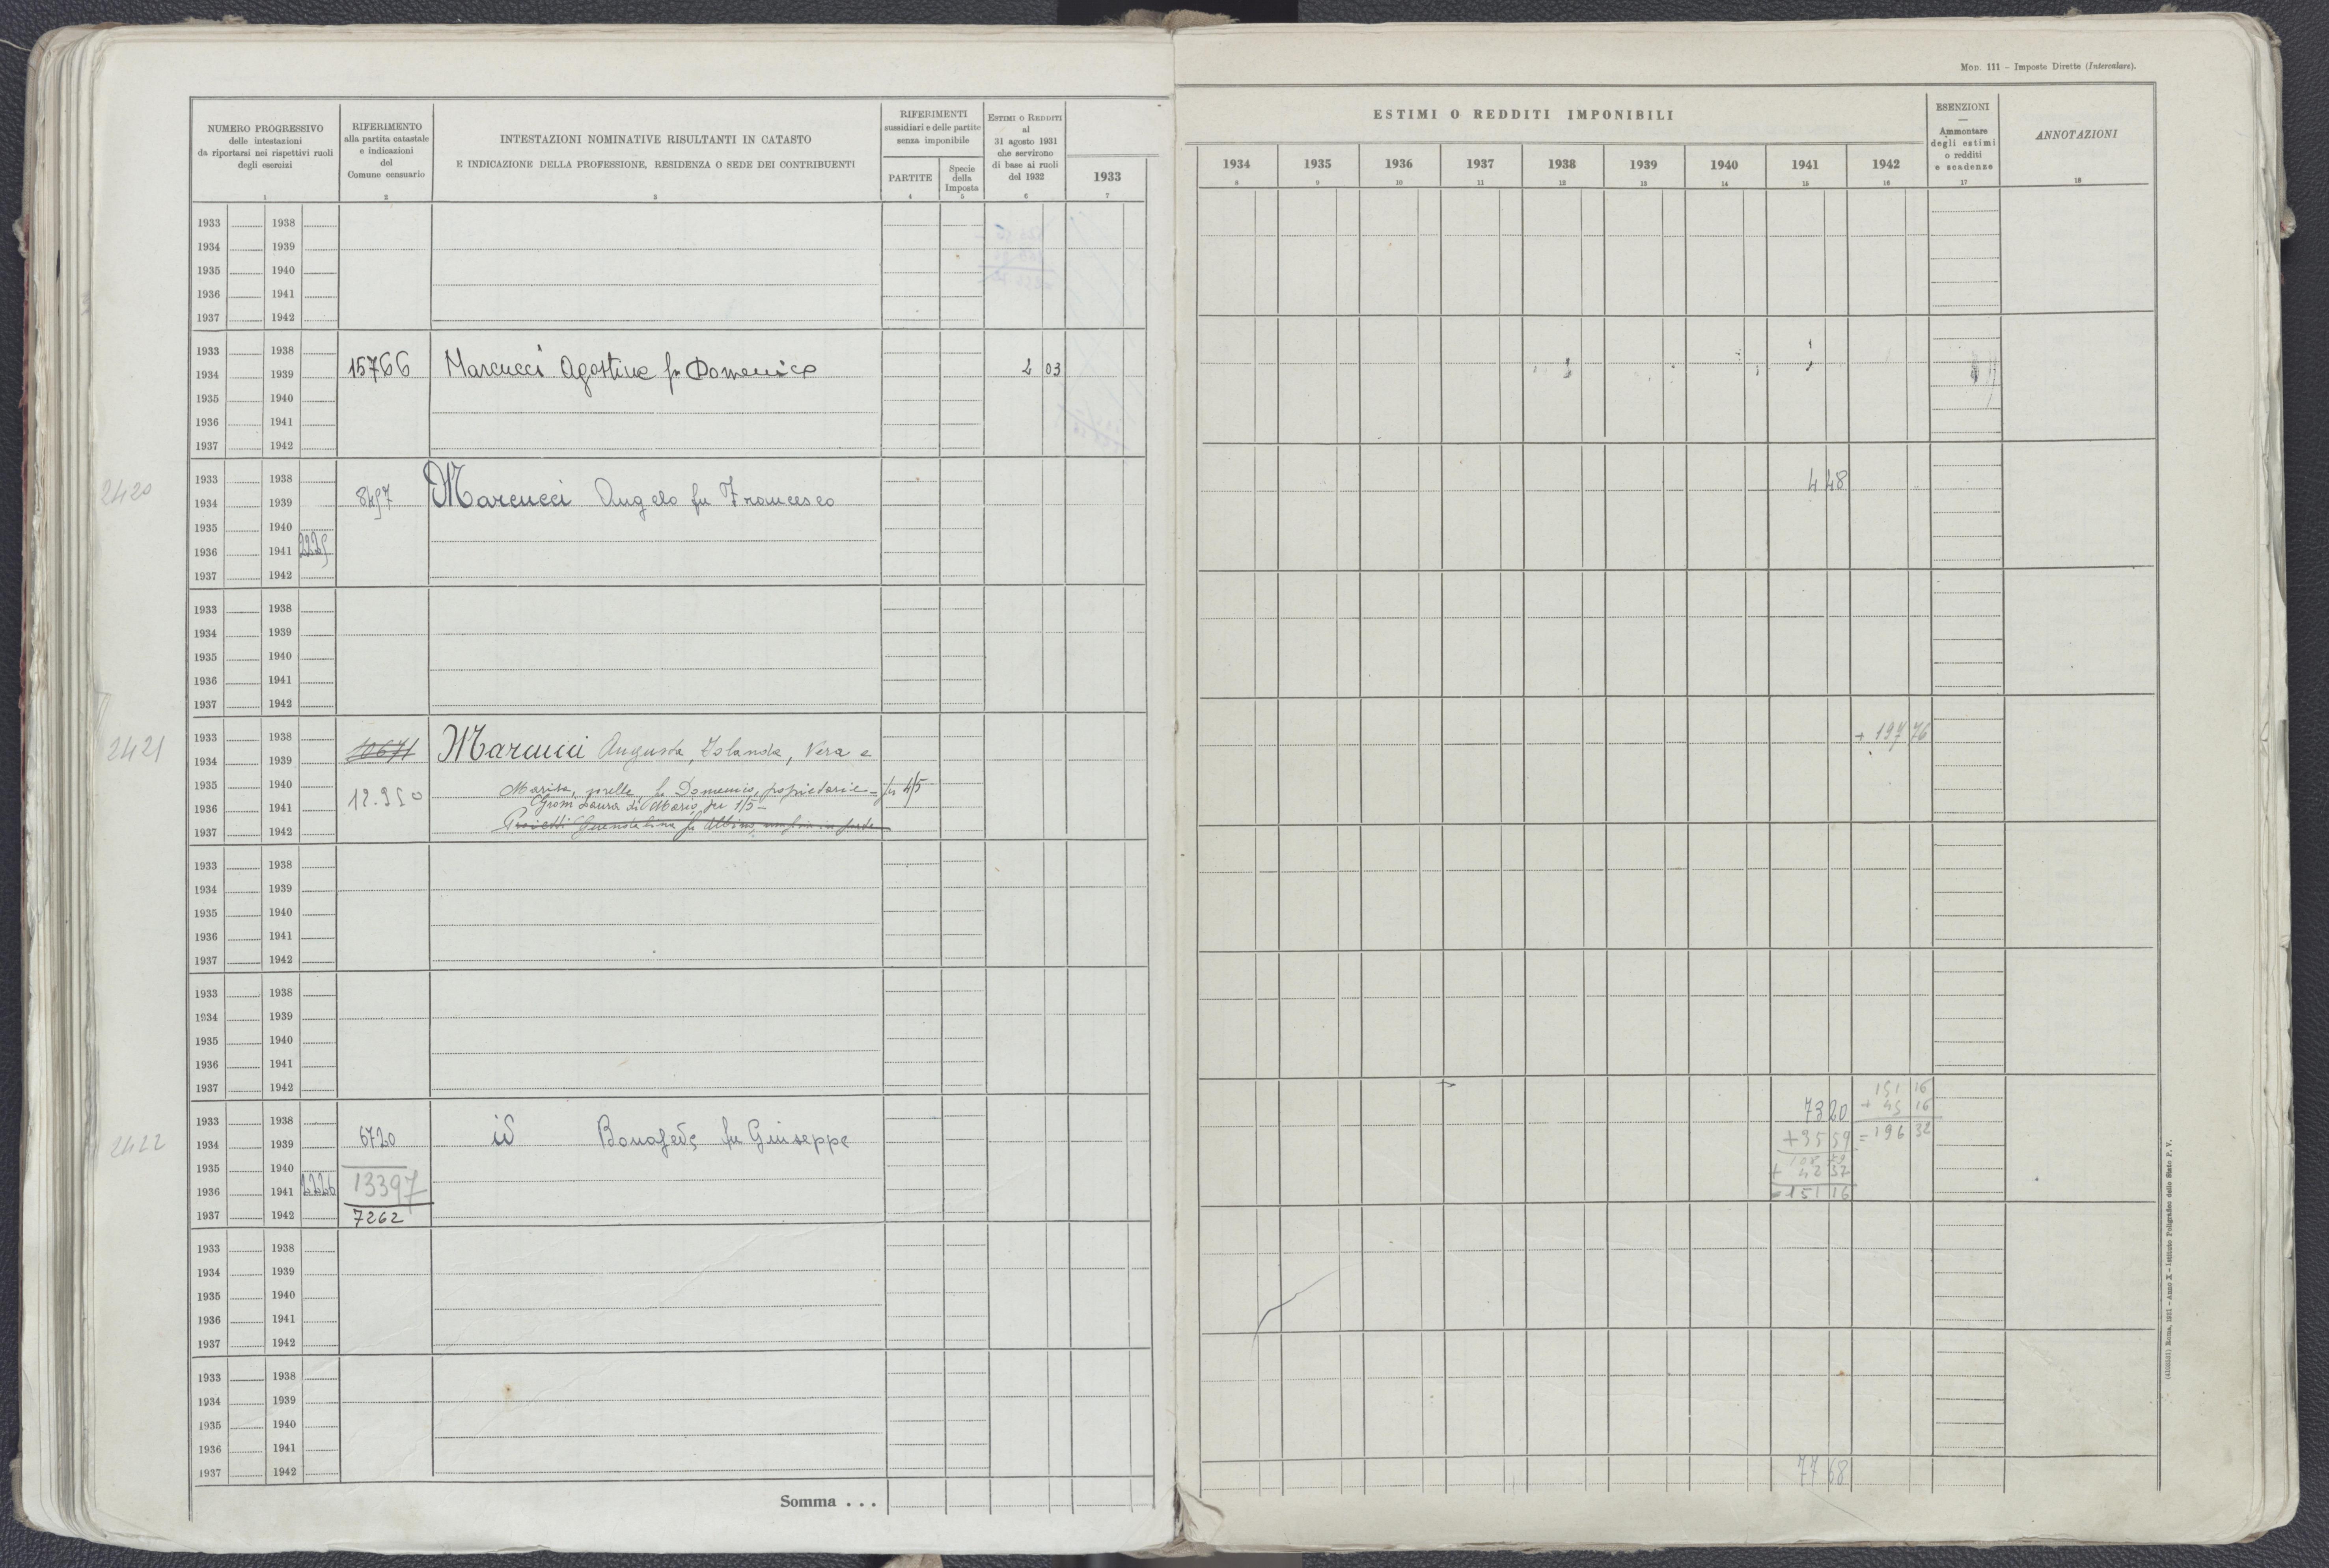 Mod. 111 - Imposte Dirette (Intercalare).
NUMERO PROGRESSIVO
delle intestazioni
da riportarsi nei rispettivi ruoli
degli esercizi
1
RIFERIMENTO
alla partita catastale
e indicazioni
del
Comune censuario
2
INTESTAZIONI NOMINATIVE RISULTANTI IN CATASTO
E INDICAZIONE DELLA PROFESSIONE, RESIDENZA O SEDE DEI CONTRIBUENTI
3
RIFERIMENTI
sussidiari e delle partite
senza imponibile
PARTITE
4
Specie
della
Imposta
5
ESTIMI O REDDITI
al
31 agosto 1931
che servirono
di base ai ruoli
del 1932
6
1933
7
ESTIMI O REDDITI IMPONIBILI
1934 1935 1936 1937 1938 1939 1940 1941 1942
8 9 10 11 12 13 14 15 16
ESENZIONI
—
Ammontare
degli estimi
o redditi
e scadenze
17
ANNOTAZIONI
18
1933 1938
1934 1939
1935 1940
1936 1941
1937 1942
1933 1938
1934 1939 15766 Marcucci Agostino fu Domenico 2 03
1935 1940
1936 1941
1937 1942
1933 1938 4 48
2420 1934 1939 8497 Marcucci Angelo fu Francesco
1935 1940
1936 1941 2225
1937 1942
1933 1938
1934 1939
1935 1940
1936 1941
1937 1942
1933 1938 + 197 76
2421 1934 1939 10671 Marcucci Augusta, Iolanda, Vera e
1935 1940 Marisa, sorelle, fu Domenico, proprietarie - per 4/5
1936 1941 12.950 Laura di Mario per 1/5 -
1937 1942 Proietti Guendalina fu Albino, usufr. in parte
1933 1938
1934 1939
1935 1940
1936 1941
1937 1942
1933 1938
1934 1939
1935 1940
1936 1941
1937 1942
151 16
1933 1938 73 20 + 45 16
2422 1934 1939 6720 id Bonafede fu Giuseppe + 35 59 = 196 32
1935 1940 108 79
1936 1941 2226 13397 + 42 37
1937 1942 7262 = 151 16
1933 1938
1934 1939
1935 1940
1936 1941
1937 1942
1933 1938
1934 1939
1935 1940
1936 1941
1937 1942 77 68
Somma . . .
Roma, 1931 - Anno X - Istituto Poligrafico dello Stato P. V.